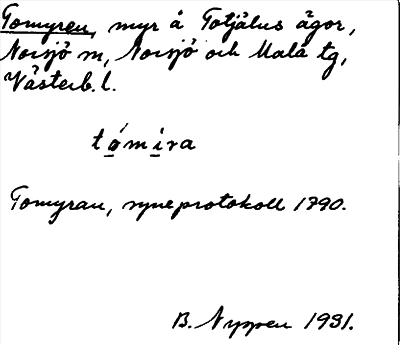 Tomyren, myr å Totjälus ägor,
Norsjö sn, Norsjö och Malå tg,
Västerb. l.
tómira
Tomyran, syneprotokoll 1790.
B. Nyppen 1931.